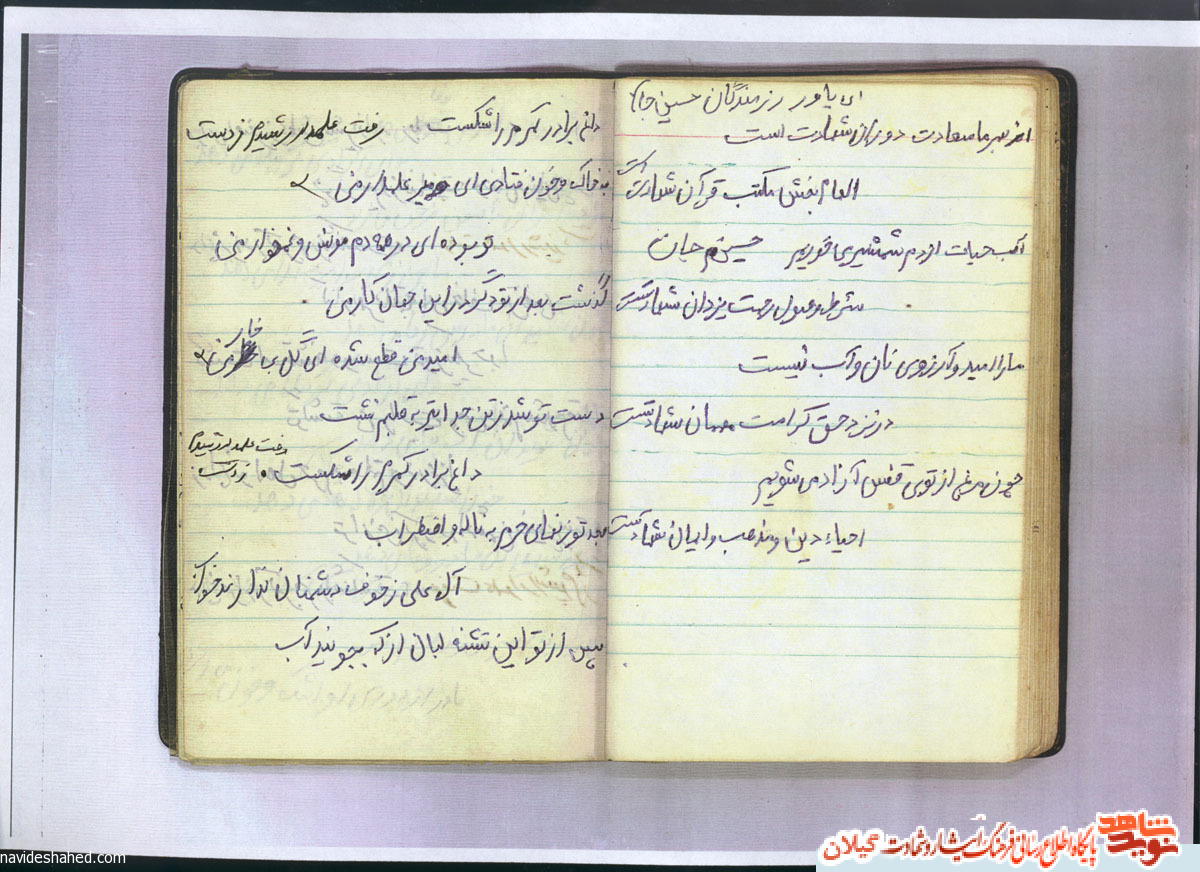 ای یاور رزمندگان حسین جان
از بهر ما سعادت دوران شهادت است
الهام بخش مکتب قرآن شهادت است
آب حیات از دم شمشیر می‌خوریم حسینم جان
شرط قبول رحمت یزدان شهادت است
ما را امید و آرزوی نان و آب نیست
در نزد حق کرامت انسان شهادت است
چون مرغ از توی قفس آزاد می‌شویم
احیاء دین و مذهب و ایمان شهادت است
داغ برادر کمرم را شکست رفت علمدار رشیدم ز دست
به خاک و خون فتاده‌ای میر علمدار منی ۲
تو بوده‌ای در همه دم مونس و غمخوار منی
گذشت بعد از تو دگر در این جهان کار منی
امید من قطع شده ای گل بی خار منی ۲
دست تو شد ز تن جدا تیر به قلبم نشست
داغ برادر کمرم را شکست رفت علمدار رشیدم ز دست
بعد تو زنهای حرم به ناله و اضطراب
آل علی ز خوف دشمنان ندارند خواب
پس از تو این تشنه لبان از که بجویند آب
navideshahed.com
نوید شاهد
پایگاه اطلاع رسانی فرهنگ ایثار و شهادت گیلان